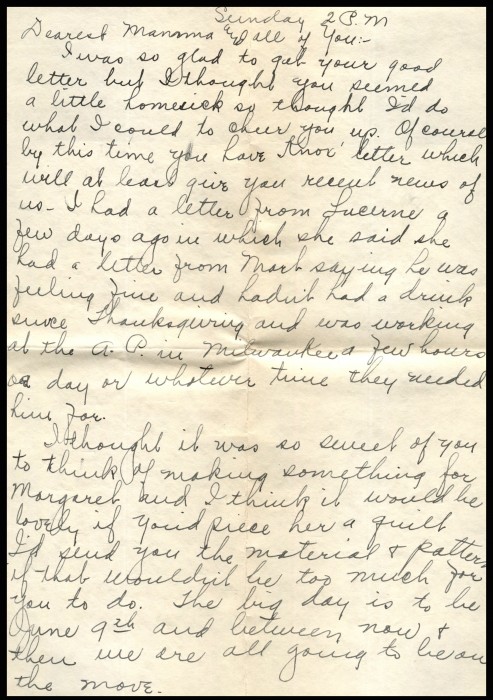 Sunday 2 P.M
Dearest Mamma and all of You:-
I was so glad to get your good
letter but I thought you seemed
a little homesick so thought I'd do
what I could to cheer you up. Of course
by this time you have Knox' letter which
will at least give you recent news of
us- I had a letter from Lucerne a
few days ago in which she said she
had a letter from Mart saying he was
feeling fine and hadn't had a drink
since Thanksgiving and was working
at the A. P. in Milwaukee a few hours
a day or whatever time they needed
him for.
I thought it was so sweet of you
to think of making something for
Margaret and I think it would be
lovely if you'd piece her a quilt
I'd send you the material & pattern
if that wouldn't be too much for
you to do. The big day is to be
June 9th and between now &
then we are all going to be on
the move.